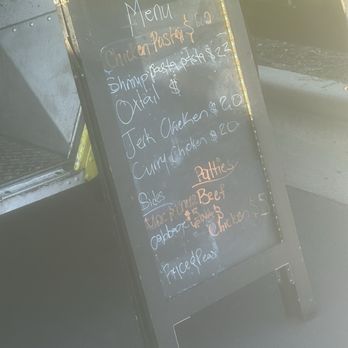 Menu
Chicken Pasta $
Shrimp Pasta $22
Oxtail $
Jerk Chicken $20
Curry Chicken $20
Sides Patties
Beef
Cabbage $5 $
Chicken $5
Rice & Peas